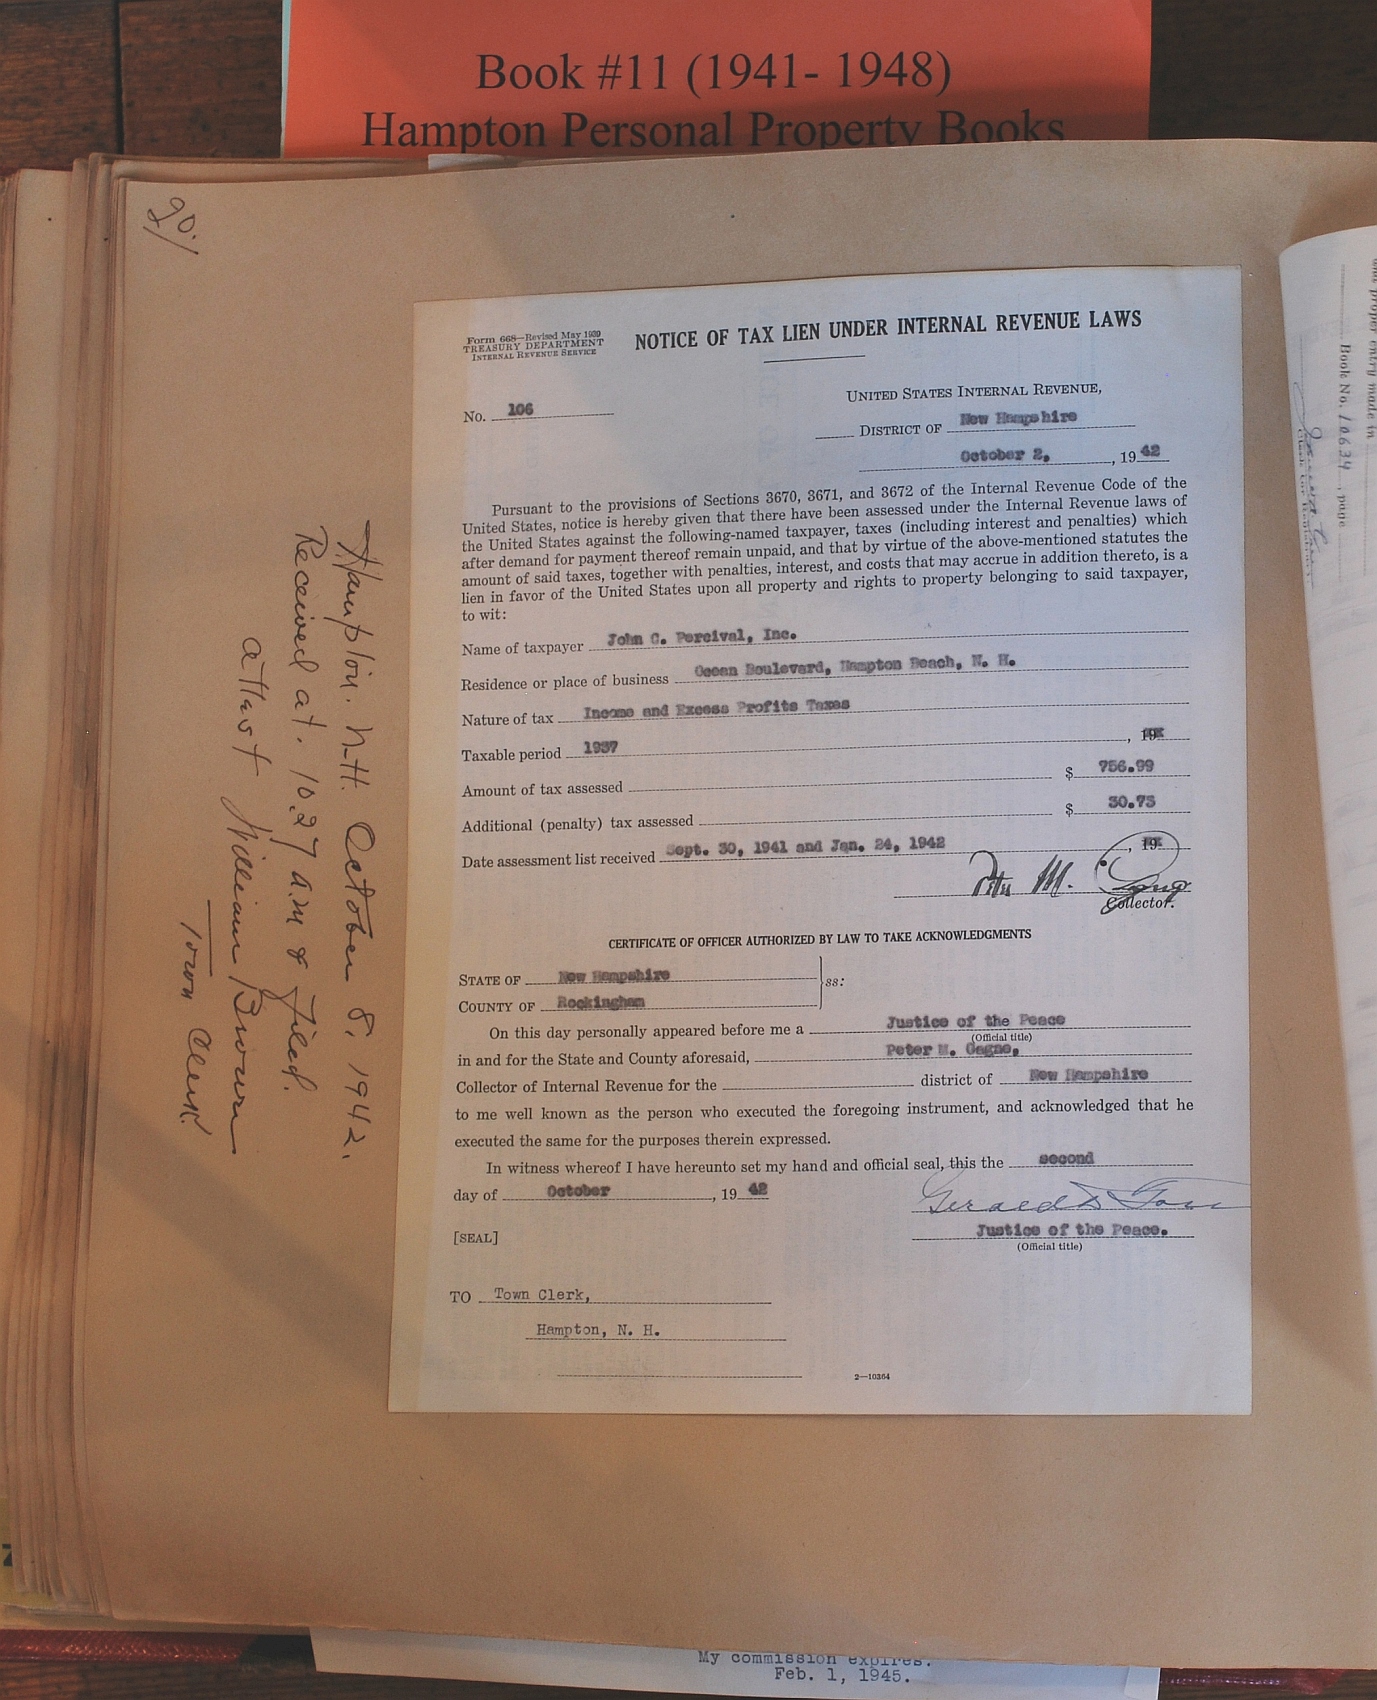 Book #11 (1941- 1948)
Hampton Personal Property Books
90./
Form 668—Revised May 1939
TREASURY DEPARTMENT
INTERNAL REVENUE SERVICE
NOTICE OF TAX LIEN UNDER INTERNAL REVENUE LAWS
No. 106
UNITED STATES INTERNAL REVENUE,
DISTRICT OF New Hampshire
October 2, , 19 42
Pursuant to the provisions of Sections 3670, 3671, and 3672 of the Internal Revenue Code of the
United States, notice is hereby given that there have been assessed under the Internal Revenue laws of
the United States against the following-named taxpayer, taxes (including interest and penalties) which
after demand for payment thereof remain unpaid, and that by virtue of the above-mentioned statutes the
amount of said taxes, together with penalties, interest, and costs that may accrue in addition thereto, is a
lien in favor of the United States upon all property and rights to property belonging to said taxpayer,
to wit:
Name of taxpayer John C. Percival, Inc.
Residence or place of business Ocean Boulevard, Hampton Beach, N. H.
Nature of tax Income and Excess Profits Taxes
Taxable period 1937 , 19
Amount of tax assessed $ 756.99
Additional (penalty) tax assessed $ 30.73
Date assessment list received Sept. 30, 1941 and Jan. 24, 1942 , 19
Peter M. Gagne
Collector.
CERTIFICATE OF OFFICER AUTHORIZED BY LAW TO TAKE ACKNOWLEDGMENTS
STATE OF New Hampshire
ss:
COUNTY OF Rockingham
On this day personally appeared before me a Justice of the Peace
(Official title)
in and for the State and County aforesaid, Peter M. Gagne,
Collector of Internal Revenue for the district of New Hampshire
to me well known as the person who executed the foregoing instrument, and acknowledged that he
executed the same for the purposes therein expressed.
In witness whereof I have hereunto set my hand and official seal, this the second
day of October , 19 42
Gerald D.
[SEAL]
Justice of the Peace.
(Official title)
TO Town Clerk,
Hampton, N. H.
2—10364
Hampton. N.H. October 8, 1942.
Received at. 10.27 a.m & Filed.
attest William Brown
Town Clerk.
proper entry made in
Book No. 10634, page
My commission expires.
Feb. 1, 1945.